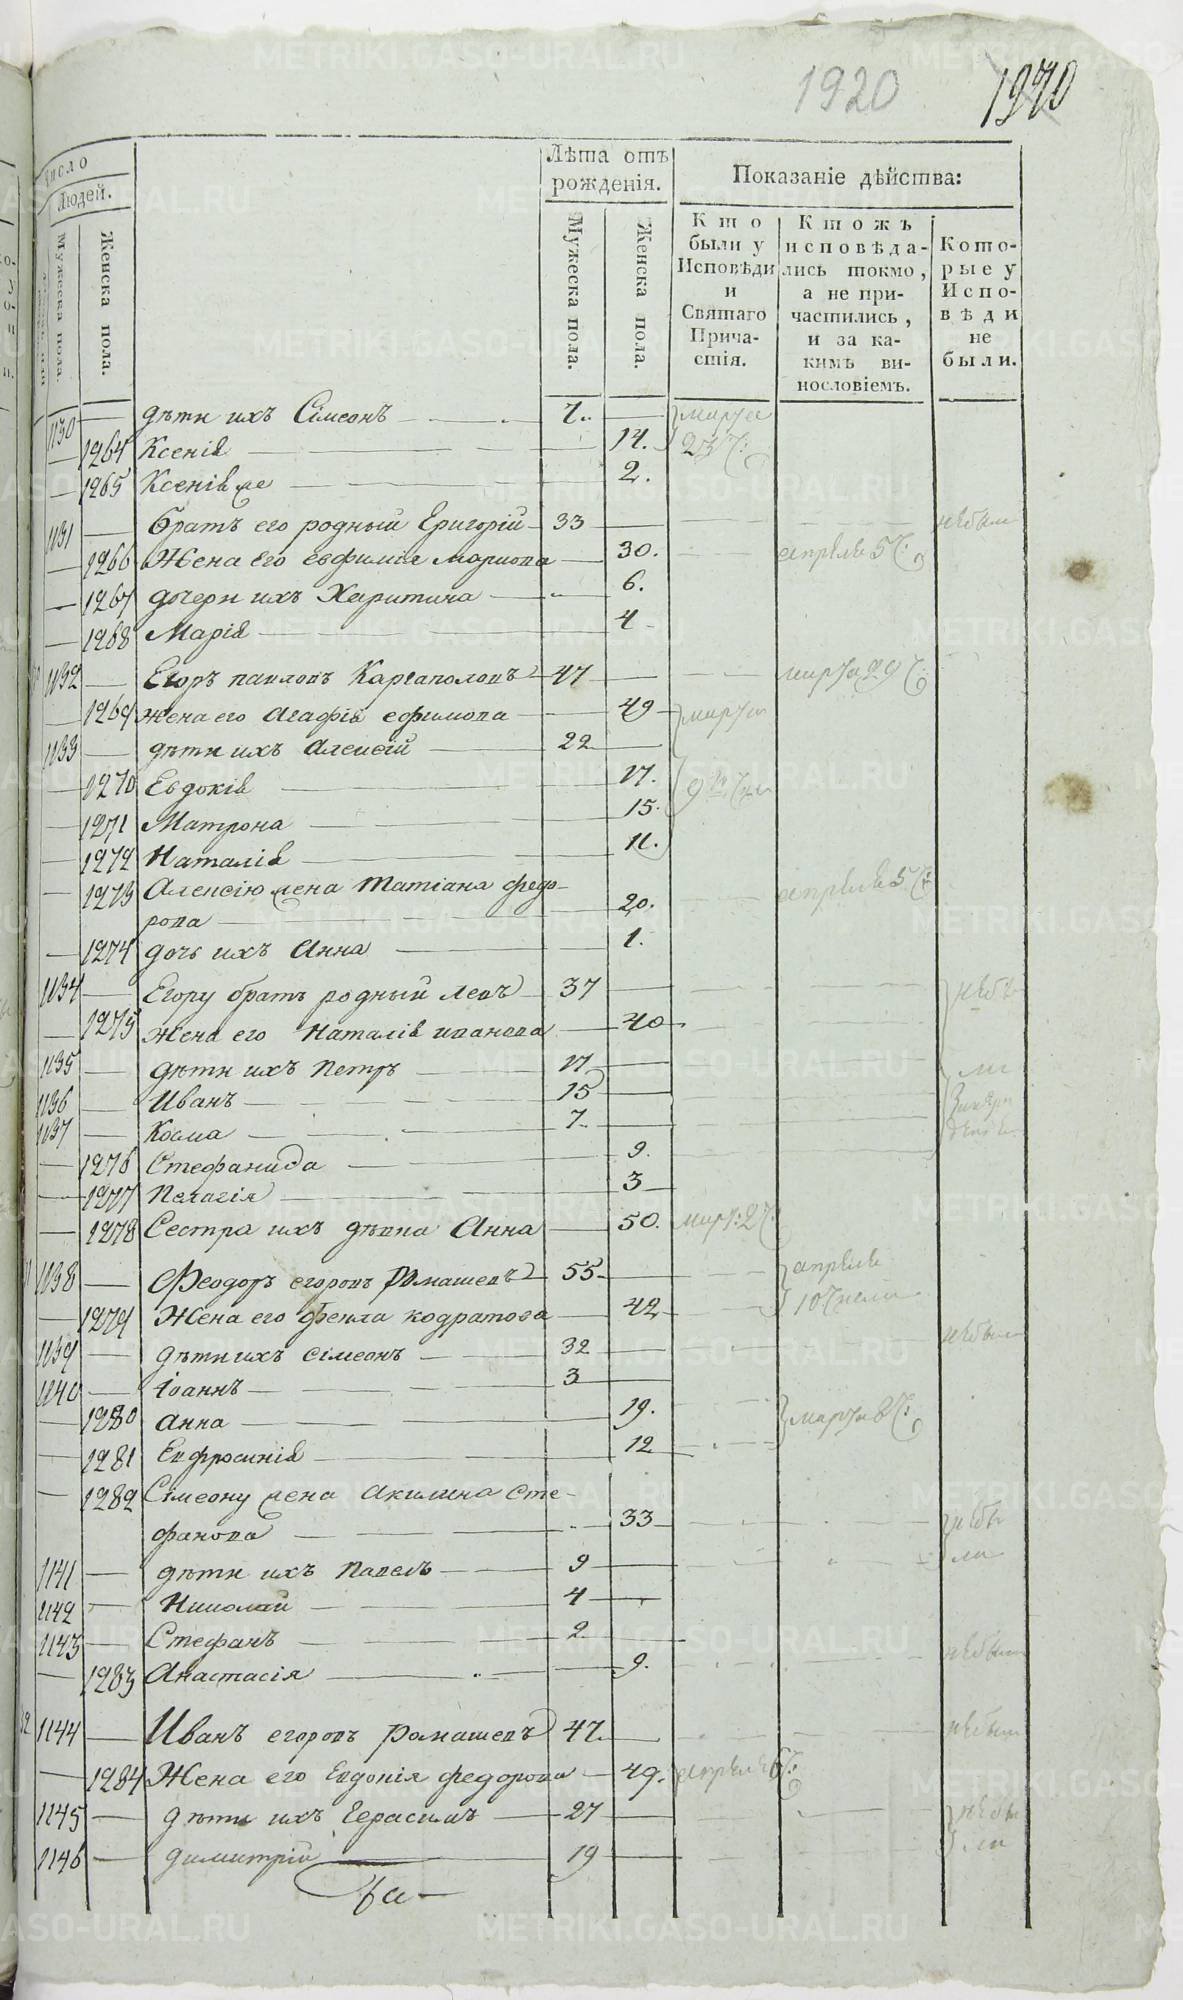 1920 1970
Число
Людей.
Мужеска пола.
Женска пола.
Лѣта отъ
рожденія.
Мужеска пола.
Женска пола.
Показаніе дѣйства:
Кто
были у
Исповѣди
и
Святаго
Прича-
стія.
Ктожъ
исповѣда-
лись токмо,
а не при-
частились,
и за ка-
кимъ ви-
нословіемъ.
Кото-
рые у
Испо-
вѣди
не
были.
1130 — дѣти ихъ Сімеонъ — 7. — марта
— 1264 Ксенія — 14. 23 ч:
— 1265 Ксенія же — 2.
1131 — братъ его родный Григорій — 33 — небылъ
— 1266 Жена его евфимія маркова — 30. апреля 5 ч:
— 1267 дочери ихъ Харитина — 6.
— 1268 Марія — 4
1132 — Егоръ павловъ Каргаполовъ — 47 — марта 29 ч:
— 1269 жена его Агафія ефимова — 49 марта
1133 — дѣти ихъ Алексій — 22 —
— 1270 Евдокія — 17. 9 числа
— 1271 Матрона — 15.
— 1272 Наталія — 11.
— 1273 Алексію жена Татіана федо-
рова — 20. апреля 5 ч:
— 1274 дочь ихъ Анна — 1.
1134 — Егору братъ родный левъ — 37 — небы
— 1275 жена его Наталія иванова — 40
1135 — дѣти ихъ Петръ — 17 — ли
1136 — Иванъ — 15 —
1137 — Косма — 7 —
— 1276 Стефанида — 9.
— 1277 Пелагія — 3
— 1278 Сестра ихъ дѣвка Анна — 50. март: 2 ч:
1138 — Феодоръ егоровъ Ромашевъ — 55 — апреля
— 1279 Жена его фекла кодратова — 42 10 числа
1139 — дѣти ихъ сімеонъ — 32 — небылъ
1140 — іоаннъ — 3 —
— 1280 анна — 19. марта 8 ч:
— 1281 Евфросинія — 12
— 1282 Сімеону жена Акилина сте-
фанова — 33 небы
1141 — дѣти ихъ Павелъ — 9 — ли
1142 — Николай — 4 —
1143 — Стефанъ — 2
— 1283 Анастасія — 9. небыли
1144 — Иванъ егоровъ ромашевъ 47. — небылъ
— 1284 Жена его Евдокія федорова — 49. апреля 6 ч:
1145 — дѣти ихъ Герасимъ — 27 — небы
1146 — димитрій — 19 — ли
METRIKI.GASO-URAL.RU